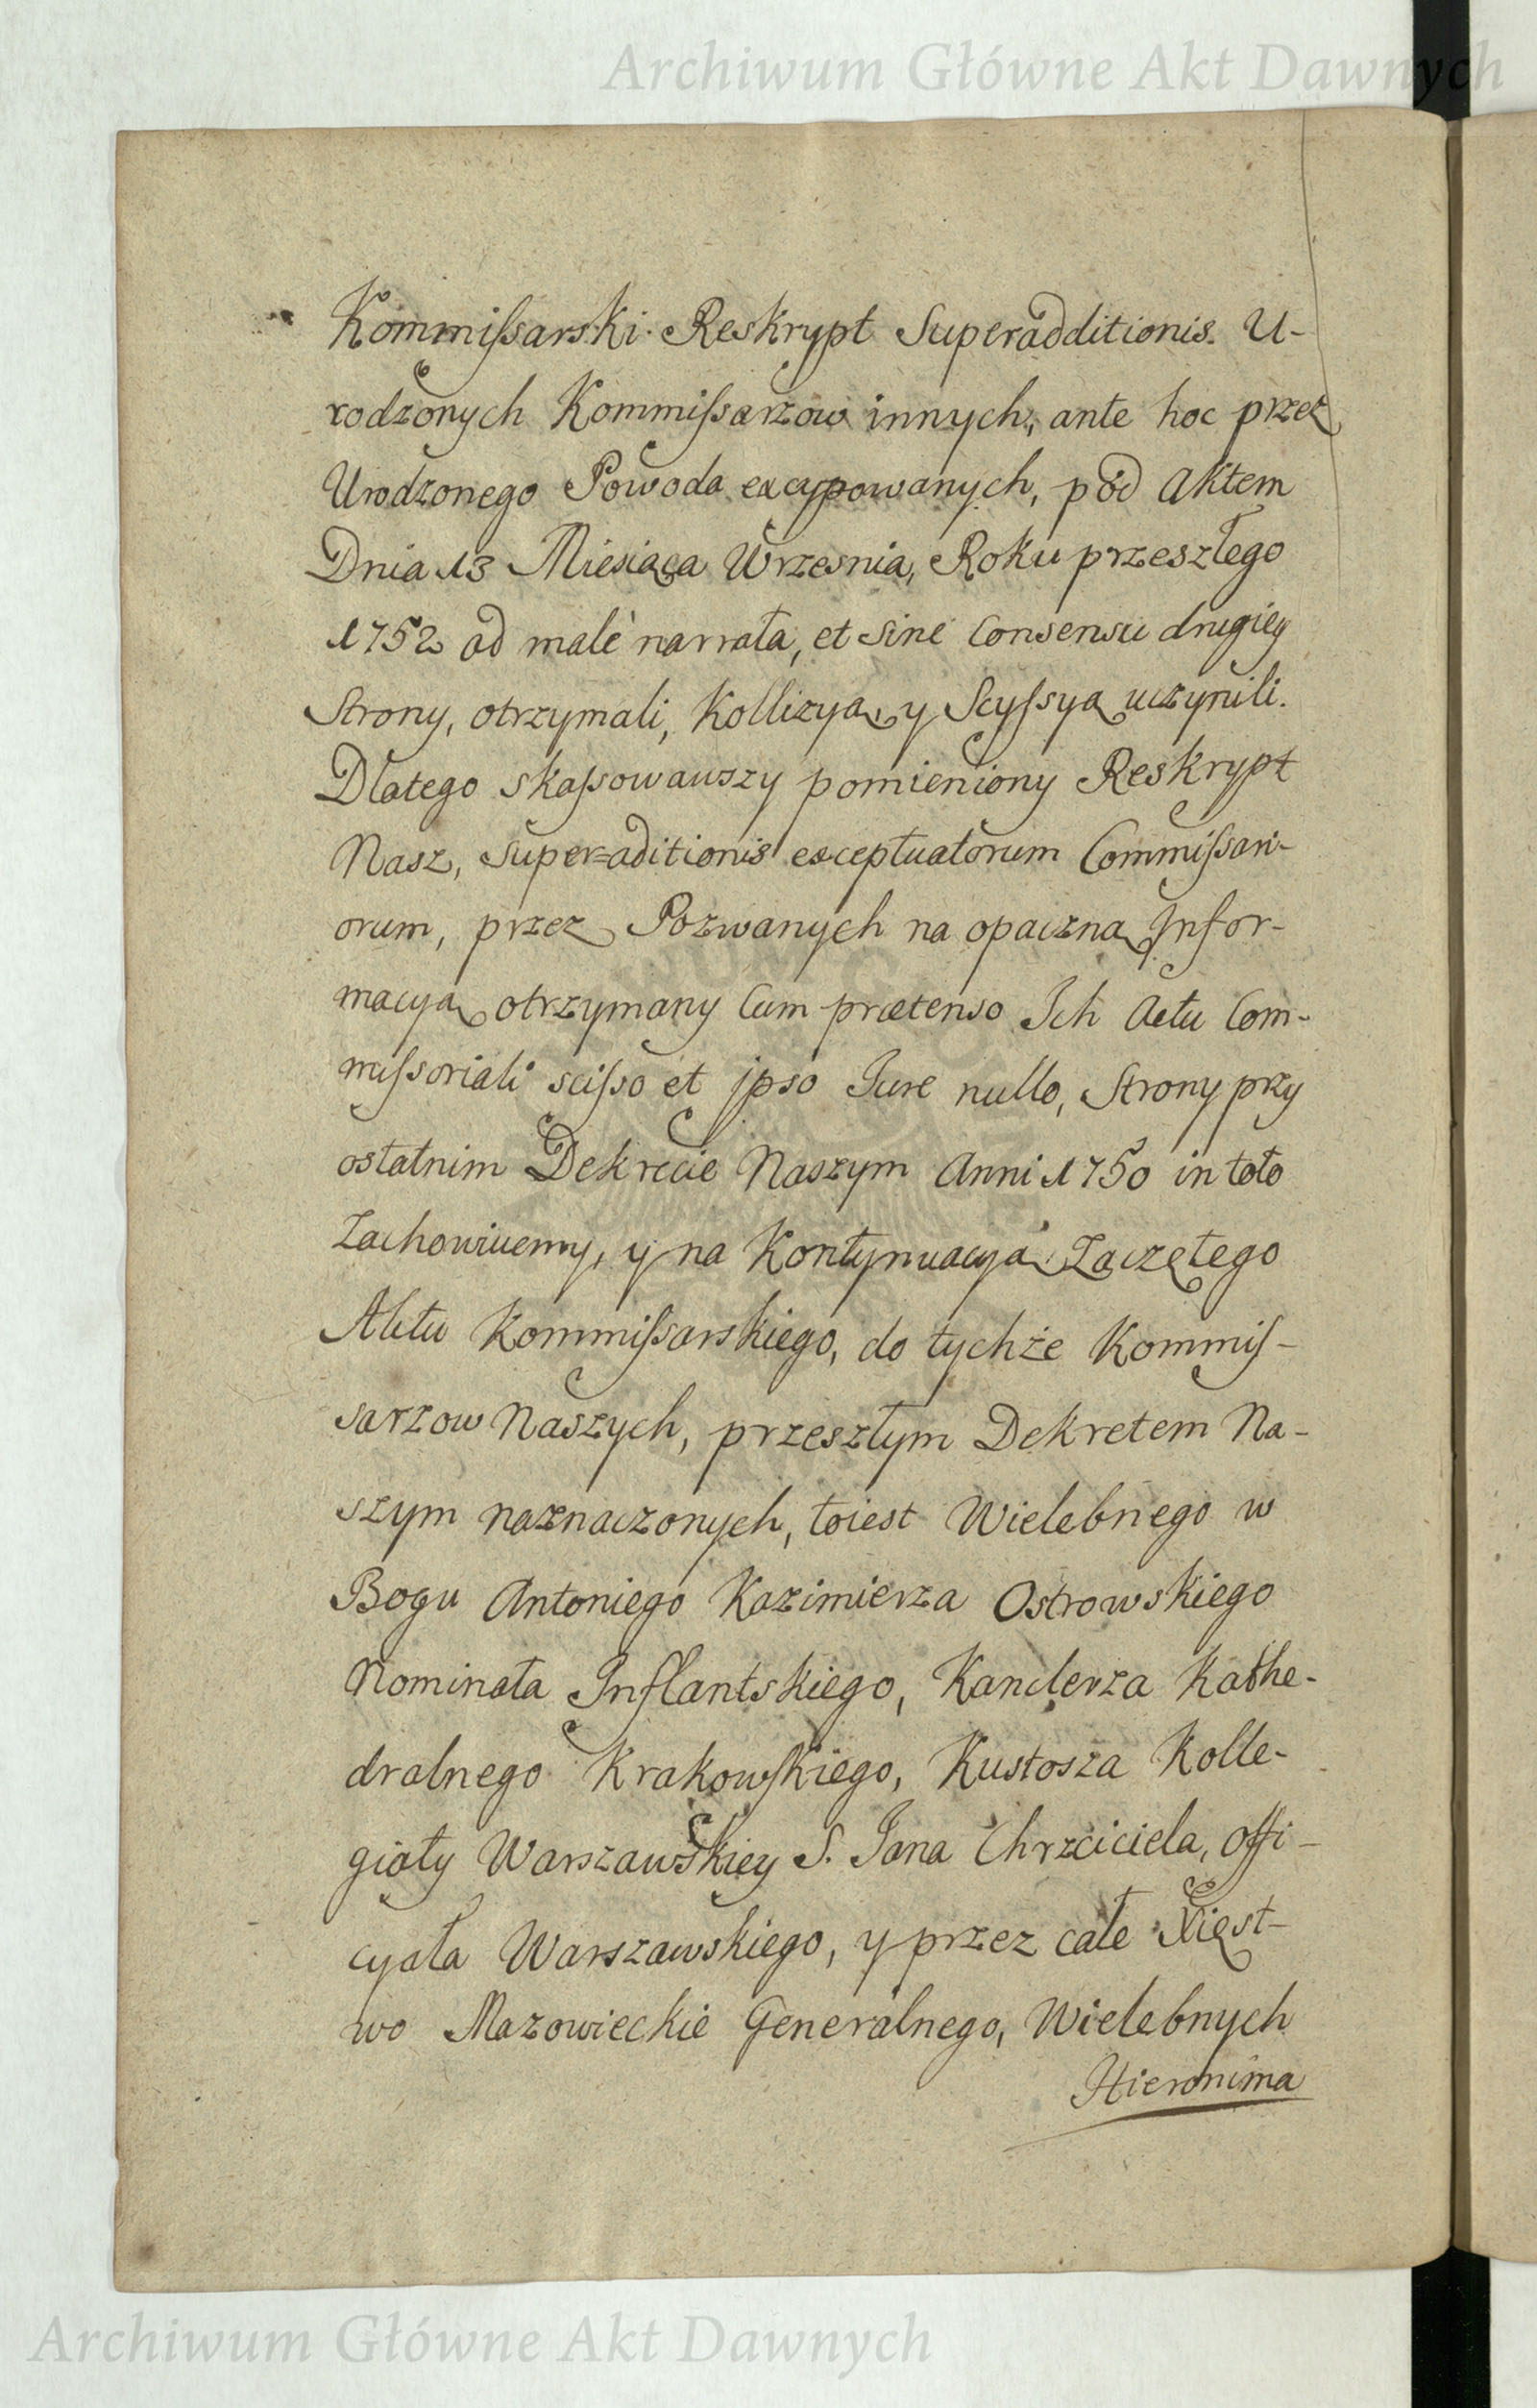 Archiwum Główne Akt Dawnych
Kommißarski Reskrypt Superadditionis U-
rodzonych Kommißarzow innych, ante hoc przez
Urodzonego Powoda excypowanych, pod Aktem
Dnia 13 Miesiąca Wrzesnia, Roku przeszłego
1752 ad malè narrata, et sine Consensu drugiey
Strony, otrzymali, Kollizyą y Scyſsyą uczynili.
Dlatego skaßowawszy pomieniony Reskrypt
Nasz, Super=aditionis exceptuatorum Commißari-
orum, przez Pozwanych na opaczną Infor-
macyą otrzymany Cum prætenso Ich Actu Com-
mißoriali scißo et ipso Jure nullo, Strony przy
ostatnim Dekrecie Naszym Anni 1750 in toto
Zachowuiemy, y na Kontynuacyą Zaczętego
Aktu Kommißarskiego, do tychże Kommiſ-
sarzow Naszych, przeszłym Dekretem Na-
szym naznaczonych, toiest Wielebnego w
Bogu Antoniego Kazimierza Ostrowskiego
Nominata Inflantskiego, Kanclerza Kathe-
dralnego Krakowſkiego, Kustosza Kolle-
giaty Warszawskiey S. Jana Chrzciciela, Offi-
cyała Warszawskiego, y przez całe Xięst-
wo Mazowieckie Generalnego, Wielebnych
Hieronima
Archiwum Główne Akt Dawnych